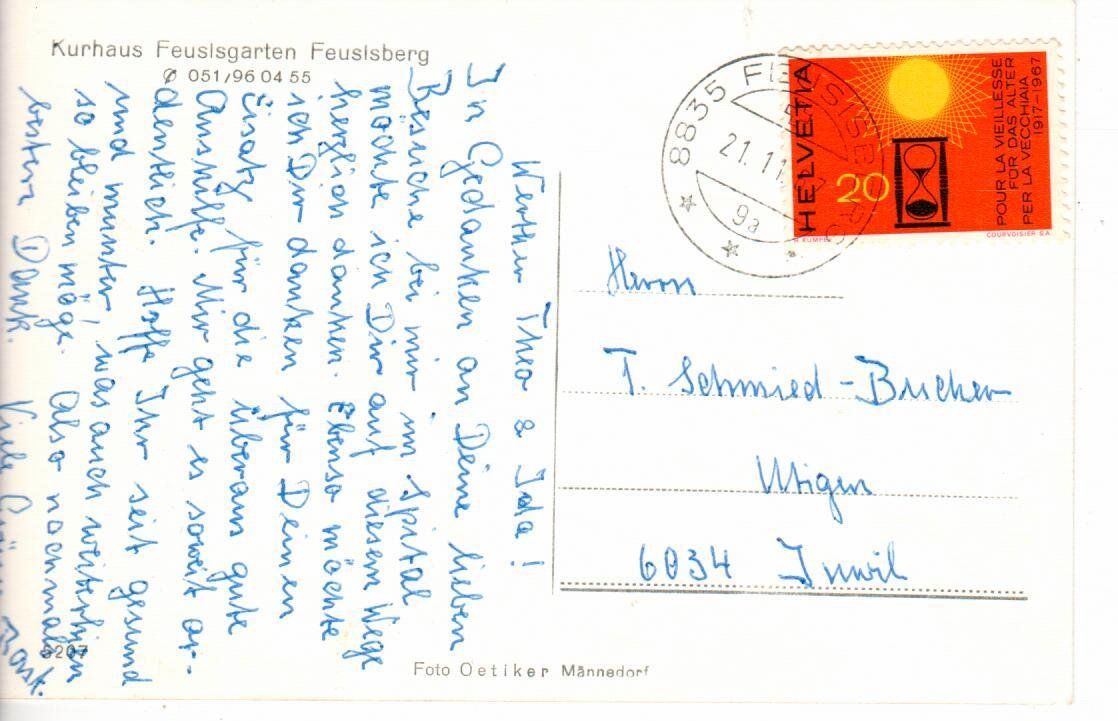 Kurhaus Feusisgarten Feusisberg
✆ 051/96 04 55
Werther Theo & Ida!
In Gedanken an Deine lieben
Besuche bei mir im Spital
möchte ich Dir auf diesem Wege
herzlich danken. Ebenso möchte
ich Dir danken für Deinen
Eisatz für die überaus gute
Aushilfe. Mir geht es soweit or-
dentlich. Hoffe Ihr seit gesund
und munter, was auch weiterhin
so bleiben möge. Also nochmals
besten Dank. Viele Grüsse
8835 FEUSISBERG
21.11.
9a
HELVETIA
20
POUR LA VIEILLESSE
FÜR DAS ALTER
PER LA VECCHIAIA
1917-1967
H. KÜMPEL
COURVOISIER S.A.
Herrn
T. Schmied-Bucher
Utigen
6034 Inwil
5207
Foto Oetiker Männedorf